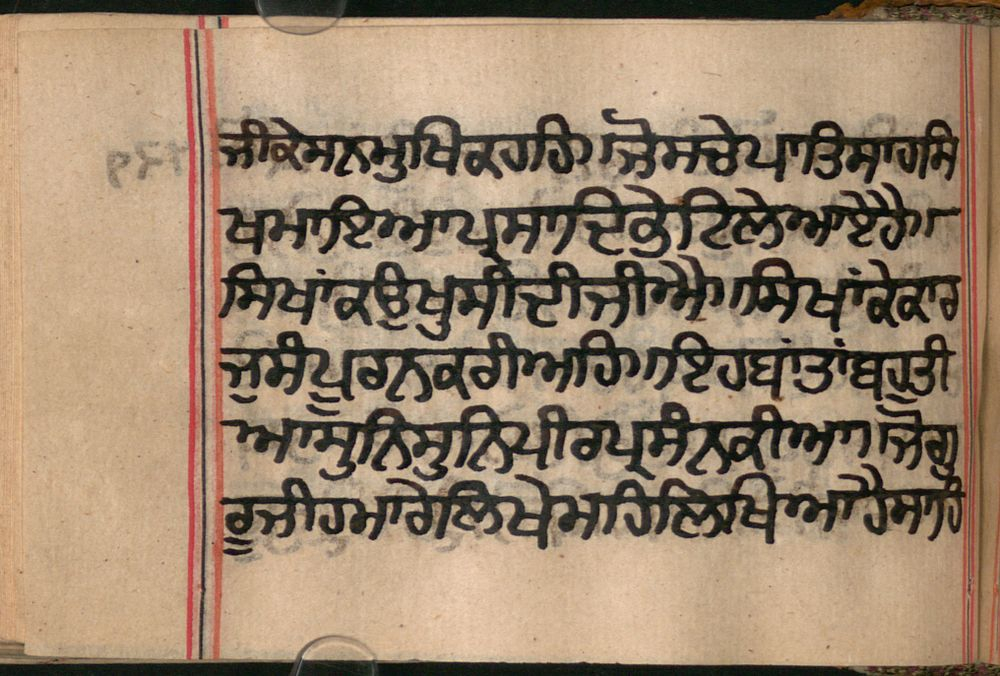 ਜੀਕੇਸਨਮੁਖਿਕਹਹਿ॥ਜੋਸਚੇਪਾਤਿਸਾਹਸਿ
ਖਸਾਇਆਪ੍ਰਸਾਦਿਕੇਟਿਲੇਆਏਹੈ॥
ਸਿਖਾਂਕਉਖੁਸੀਦੀਜੀਐ॥ਸਿਖਾਂਕੇਕਾਰ
ਜੁਸੰਪੂਰਨਕਰੀਅਹਿ॥ਇਹਬਾਂਤਾਂਬਹੁਤੀ
ਆਸੁਨਿਸੁਨਿਪੀਰਪ੍ਰਸੰਨਕੀਆ॥ਜੋਗੁ
ਰੂਜੀਹਮਾਰੇਲਿਖੇਮਾਹਿਲਿਖਿਆਹੈਸਾਹਿ